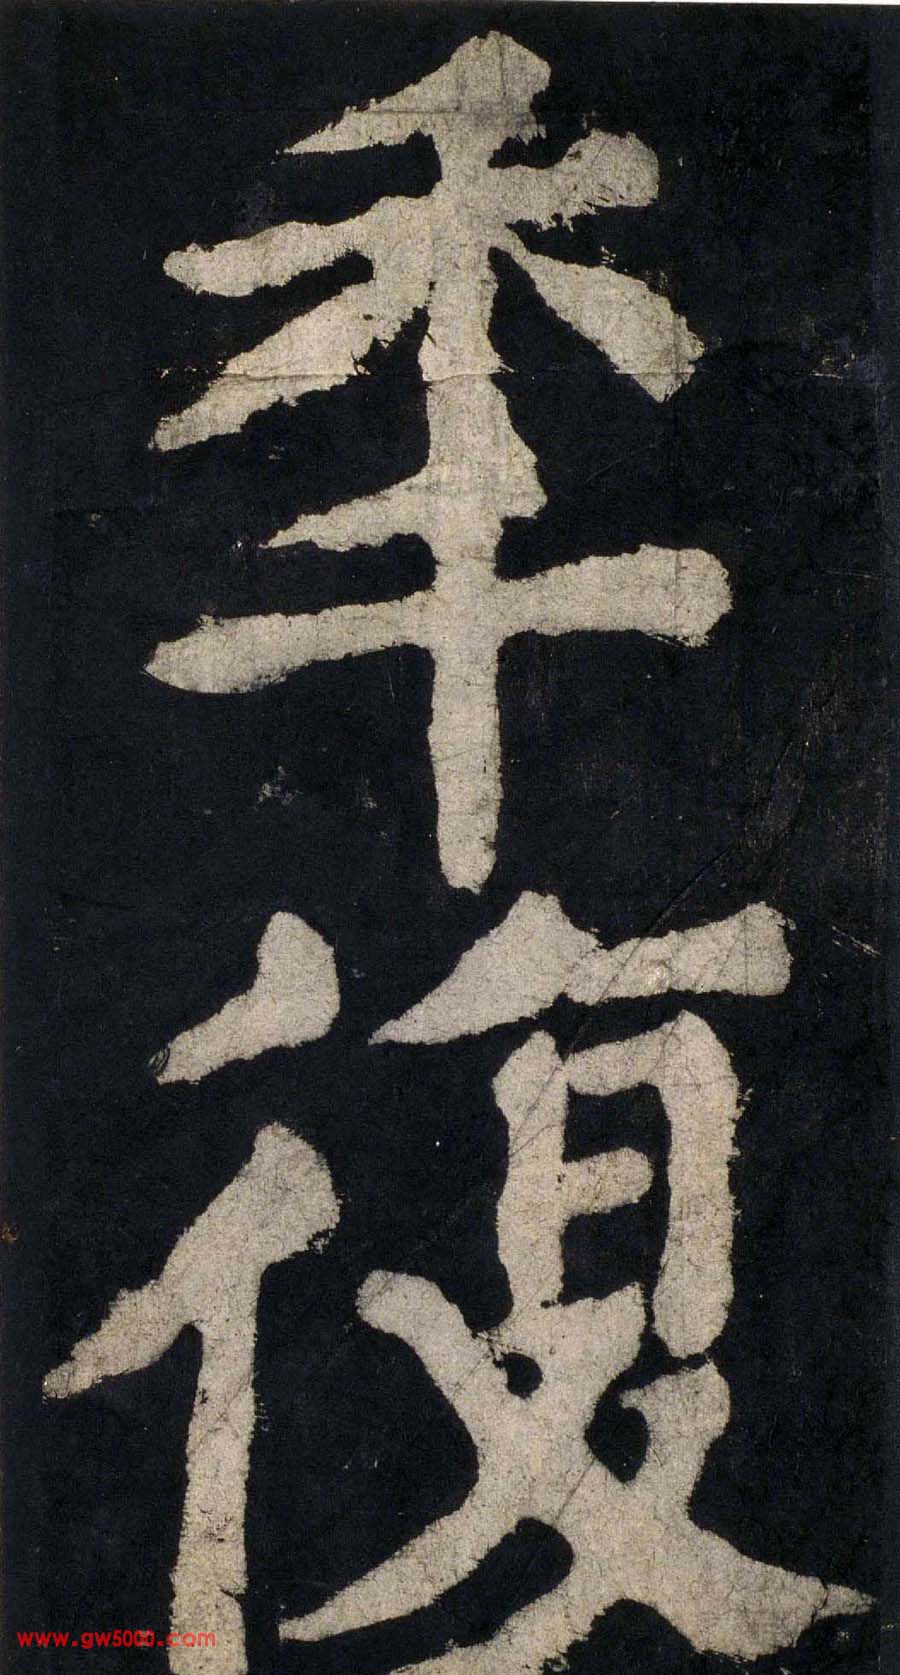 秊復
www.gw5000.com